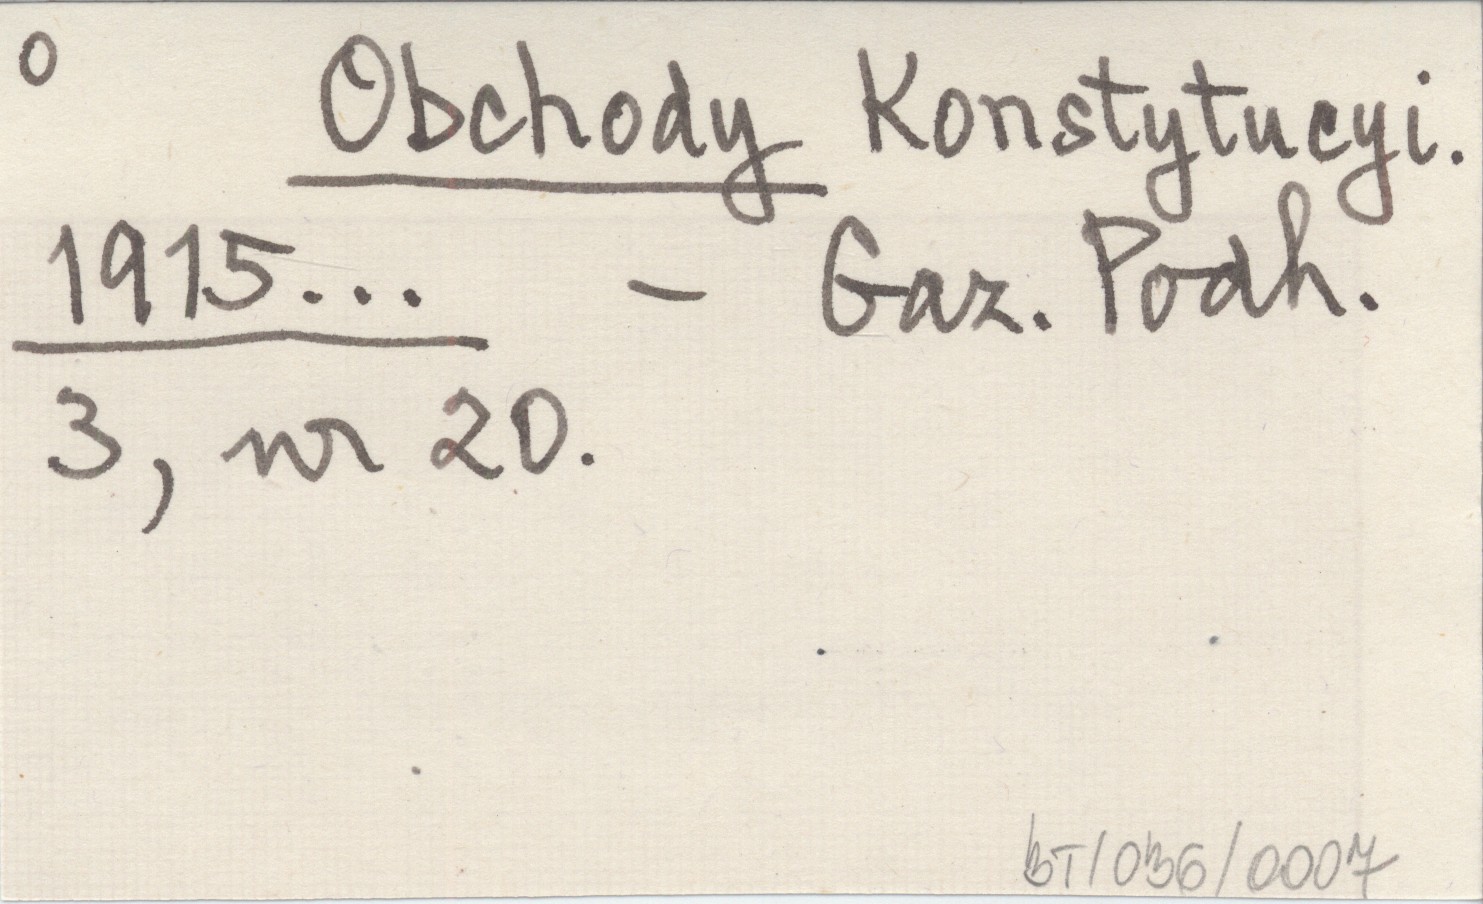 O Obchody Konstytucyi.
1915... - Gaz. Podh.
3, nr 20.
BT/036/0007